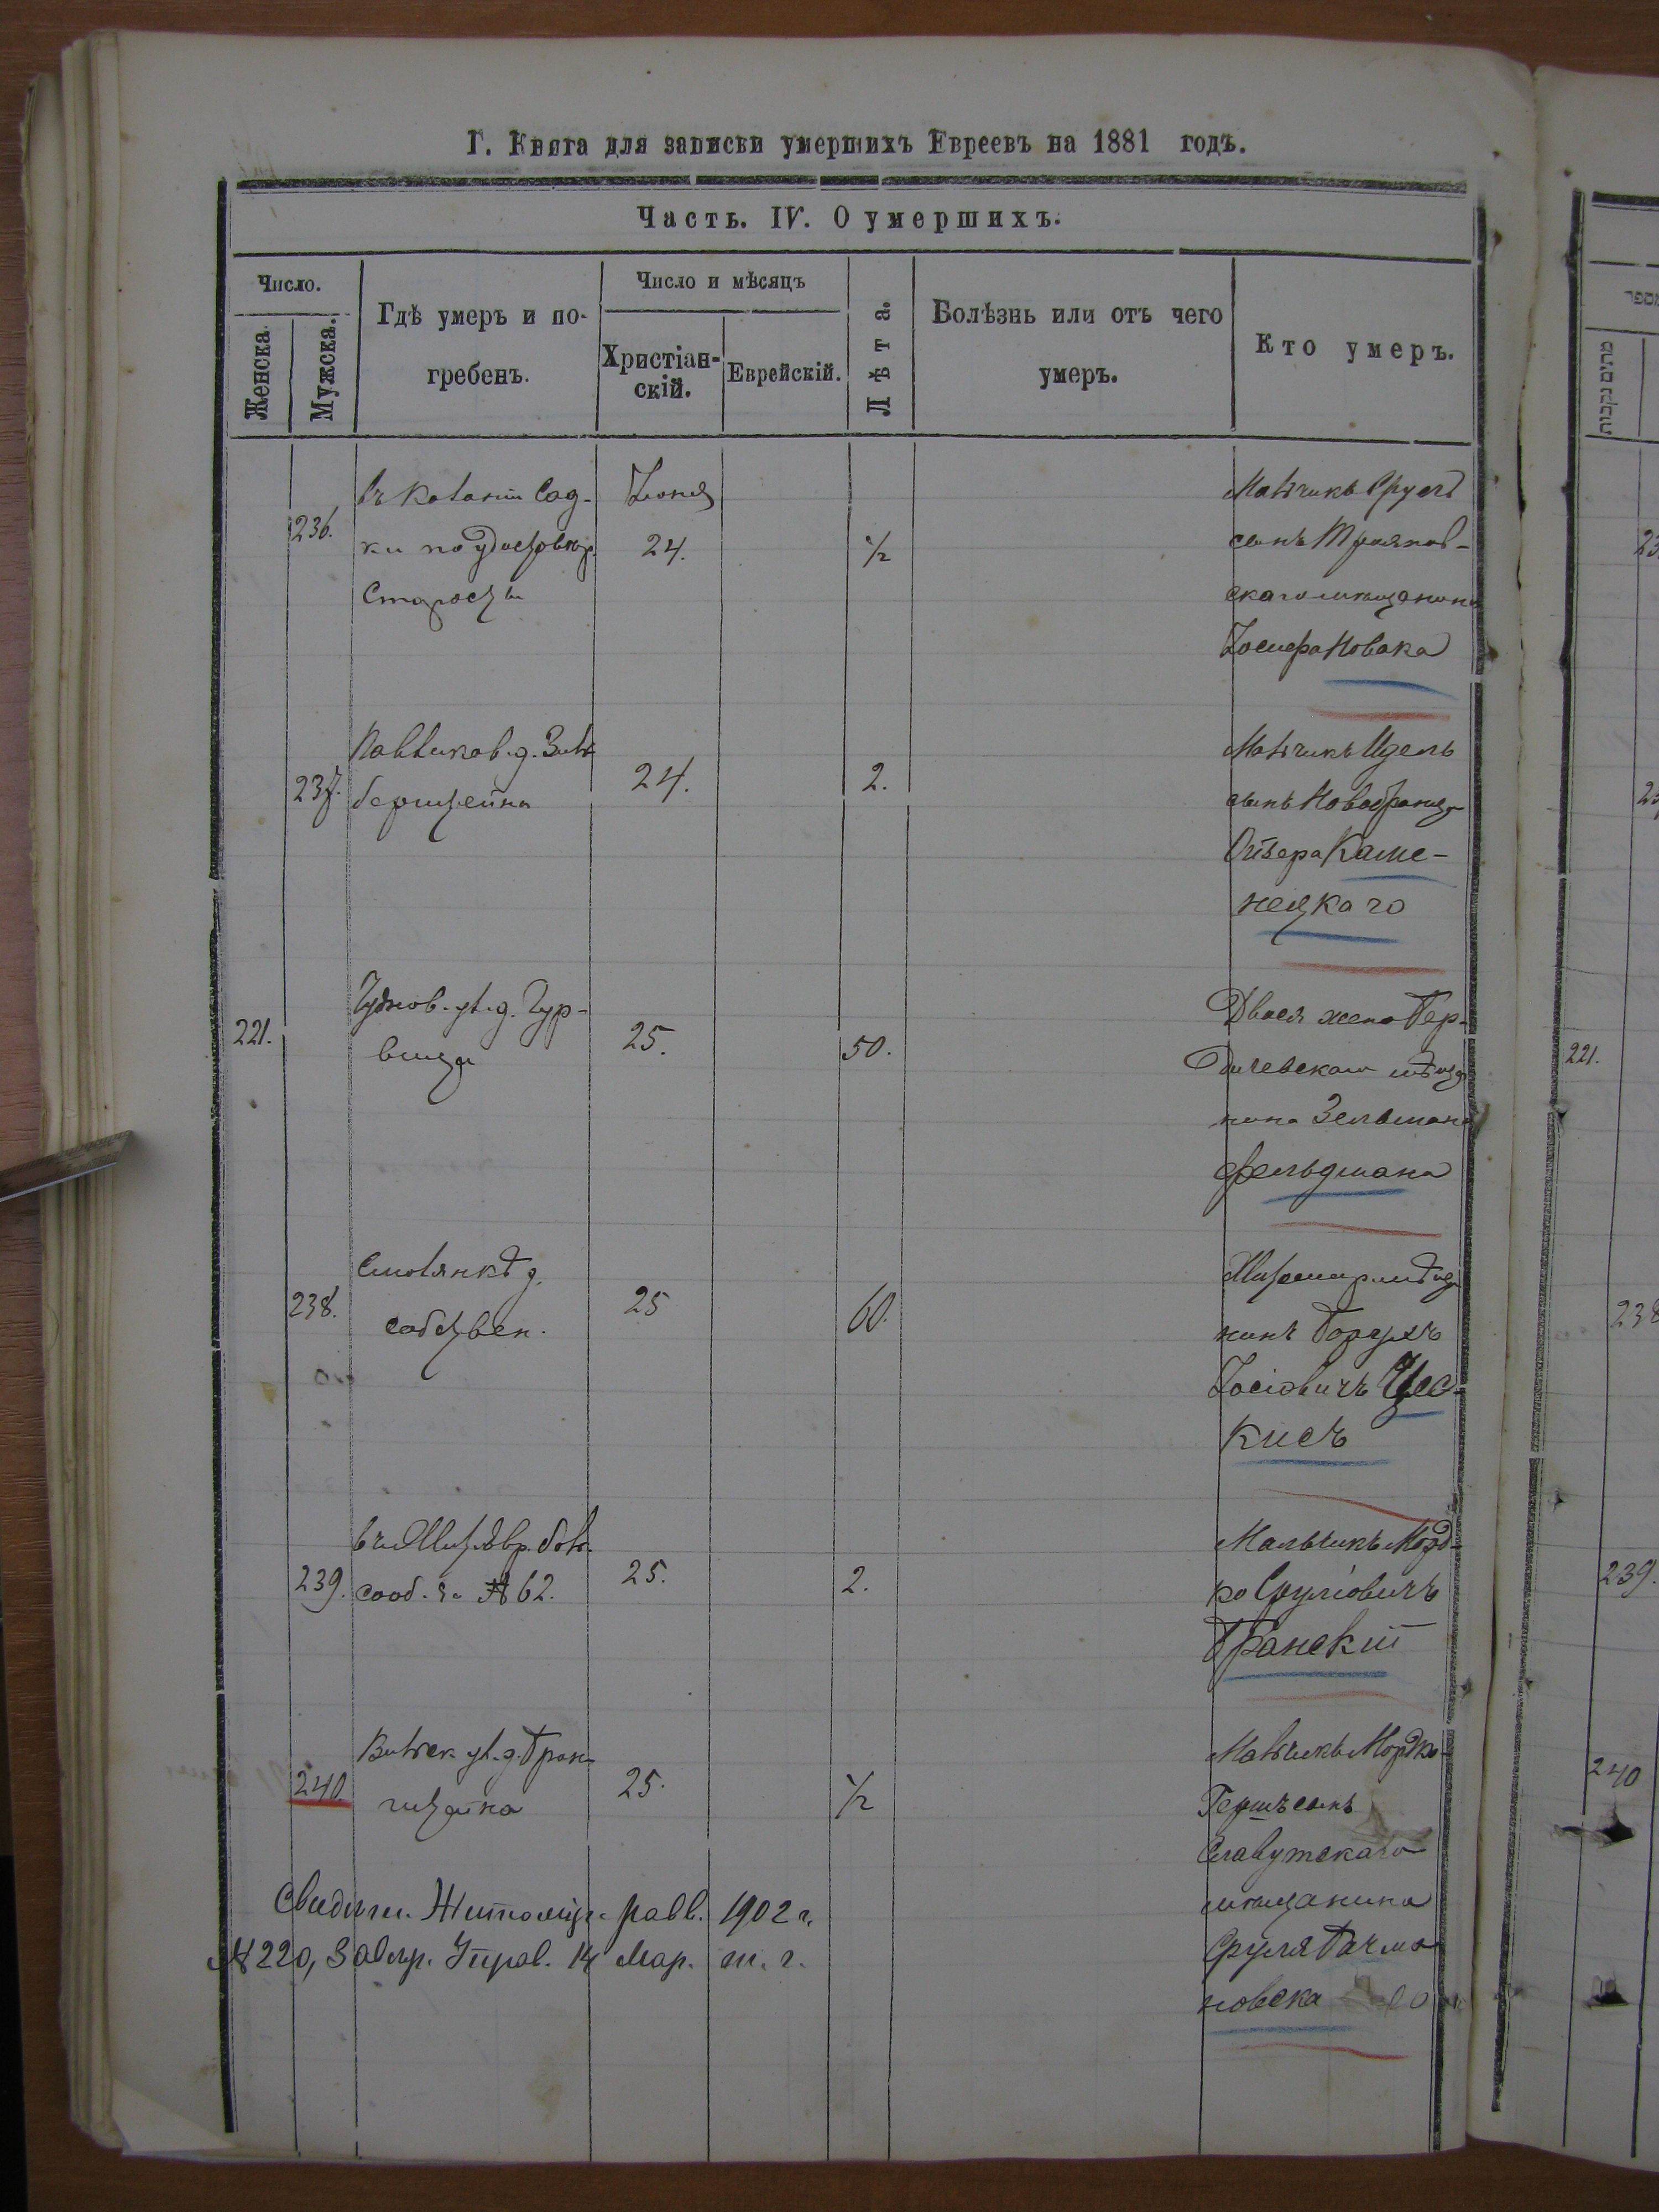 Г. Книга для записки умершихъ Евреевъ на 1881 годъ.
Часть. IV. О умершихъ.
Число.
Женска.
Мужска.
Гдѣ умеръ и по-
гребенъ.
Число и мѣсяцъ
Христіан-
скій.
Еврейскій.
Лѣта.
Болѣзнь или отъ чего
умеръ.
Кто умеръ.
236.
въ Колоніи Сад-
ки по удостовѣр
Старосты
Іюня
24.
1/2
Мальчикъ Сруль
сынъ Трояновъ-
скаго мѣщанина
Іосифа Новака
237.
24.
2.
Мальчикъ Идель
сынъ Новобранца
Ойзера Каме-
нецкаго
221.
Чуднов. ул. д. Гур-
вица
25.
50.
Двося жена Бер-
дичевскаго мѣща
нина Зельмана
Фельдмана
238.
Смолянкѣ д.
собствен.
25
60.
Житомир мѣща
нинъ Борухъ
Іосіовичъ Цес-
кисъ
239.
въ Жит. Евр. бол.
сооб. за № 62.
25.
2.
Мальчикъ Морд-
ко Сруліовичъ
Бранскій
240.
Вильск. ул. д. Брон-
штейна
25.
1/2
Мальчикъ Мордко-
Гершъ сынъ
Славутскаго
мѣщанина
Сруля Рахма
новска го
Свидѣт. Житомір. равв. 1902 г.
№ 220, Завѣр. Управ. 14 Мар. т. г.
מספר
מתים נקבות
221.
238
239.
240